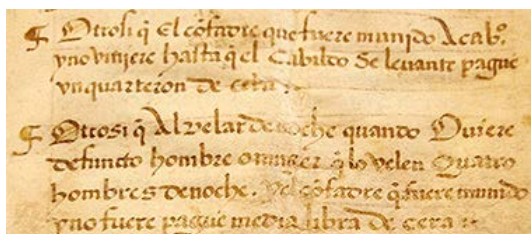 ¶ Otrosi q̃ El cõfadre que fuere munido A cabº.
y no viniere hasta q̃ el Cabildo Se levante pague
vn quarteron de cera
¶ Otrosi q̃ Al velar de noche quando Oviere
defuncto hombre o muger q̃ lo velen Quatro
hombres de noche. Y el cõfadre q̃ fuere munido
y no fuere pague media libra de cera